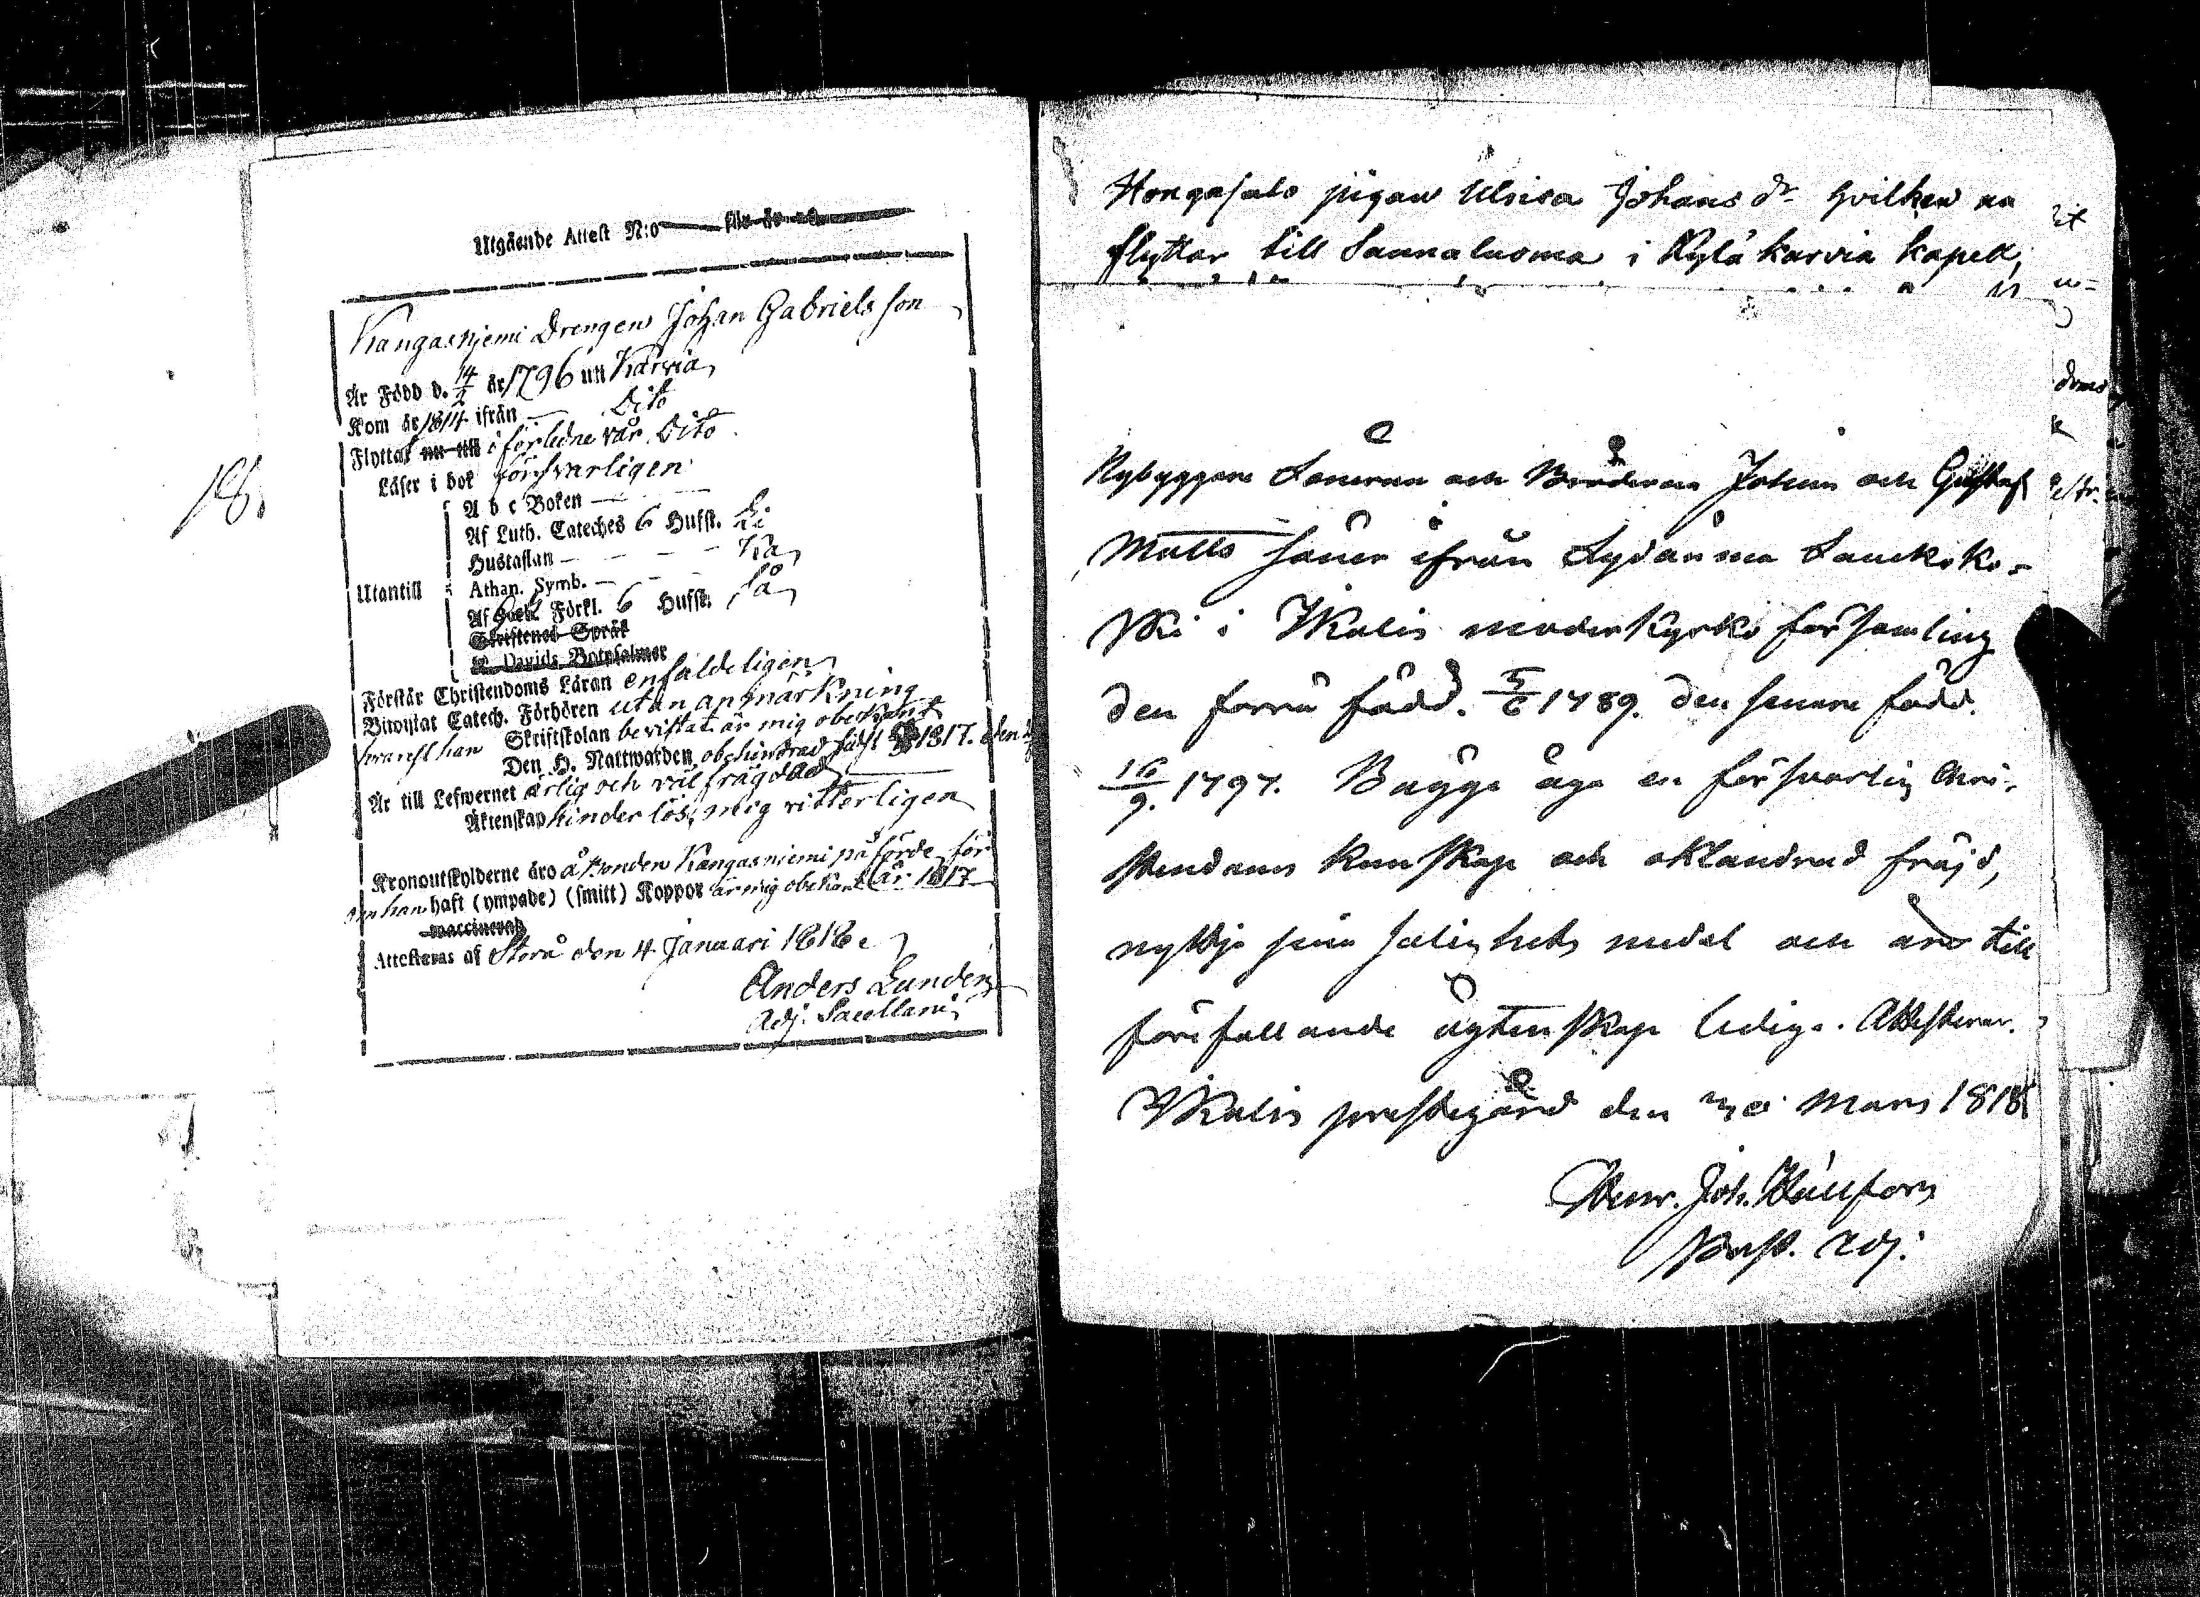 18.
Utgående Attest N:o
Kangasnjemi Drengen Johan Gabriels son
Är Född d. 14/2 år 1796 uti Karvia
Kom år 1814 ifrån Dito
Flyttat nu till i förledne vår Dito
Läser i bok försvarligen
A b c Boken
Af Luth. Cateches 6 Hufst.
Hustaflan
Utantill
Athan. Symb.
Af Förkl. 6 Hufst.
Skriftenes Språk
Davids Botpsalmer
Förstår Christendoms Läran enfaldeligen
Biwistat Catech. Förhören utan anmärkning
hvarest han Skriftskolan bevistat är mig obekant
Den H. Nattwarden obehindrad sidst 1817. den
Är till Lefwernet ärlig och väl frägdad
Äktenskap hinderlös, mig vitterligen
Kronoutskylderne äro å Bonden Kangasniemi påförde för
om han haft (ympade) (smitt) Koppor är mig obekant år 1817
vaccinerad
Attesteras af Storå den 4 Januari 1818.
Anders Lunden
Adj. Sacellani
Hongasalo pigan Ulrica Johans dr hvilken nu
flyttar till Saunaluoma i Kylä karvia kapell,
Nybyggare Sönerna och Bröderna Johan och Gustaf
Matts söner ifrån Sydänma
i Ikalis moderkyrko församling
den förra född. 5/6 1789. den senare född.
16/9. 1797. Bägge äga en försvarlig Chri-
stendoms kunskap och oklandrad fräjd,
nyttja sina salighets medel och äro till
förefallande ägtenskap lediga. Attesterar.
Ikalis prestegård den Mars 1818
Henr. Joh. Hällfors
Past. adj.